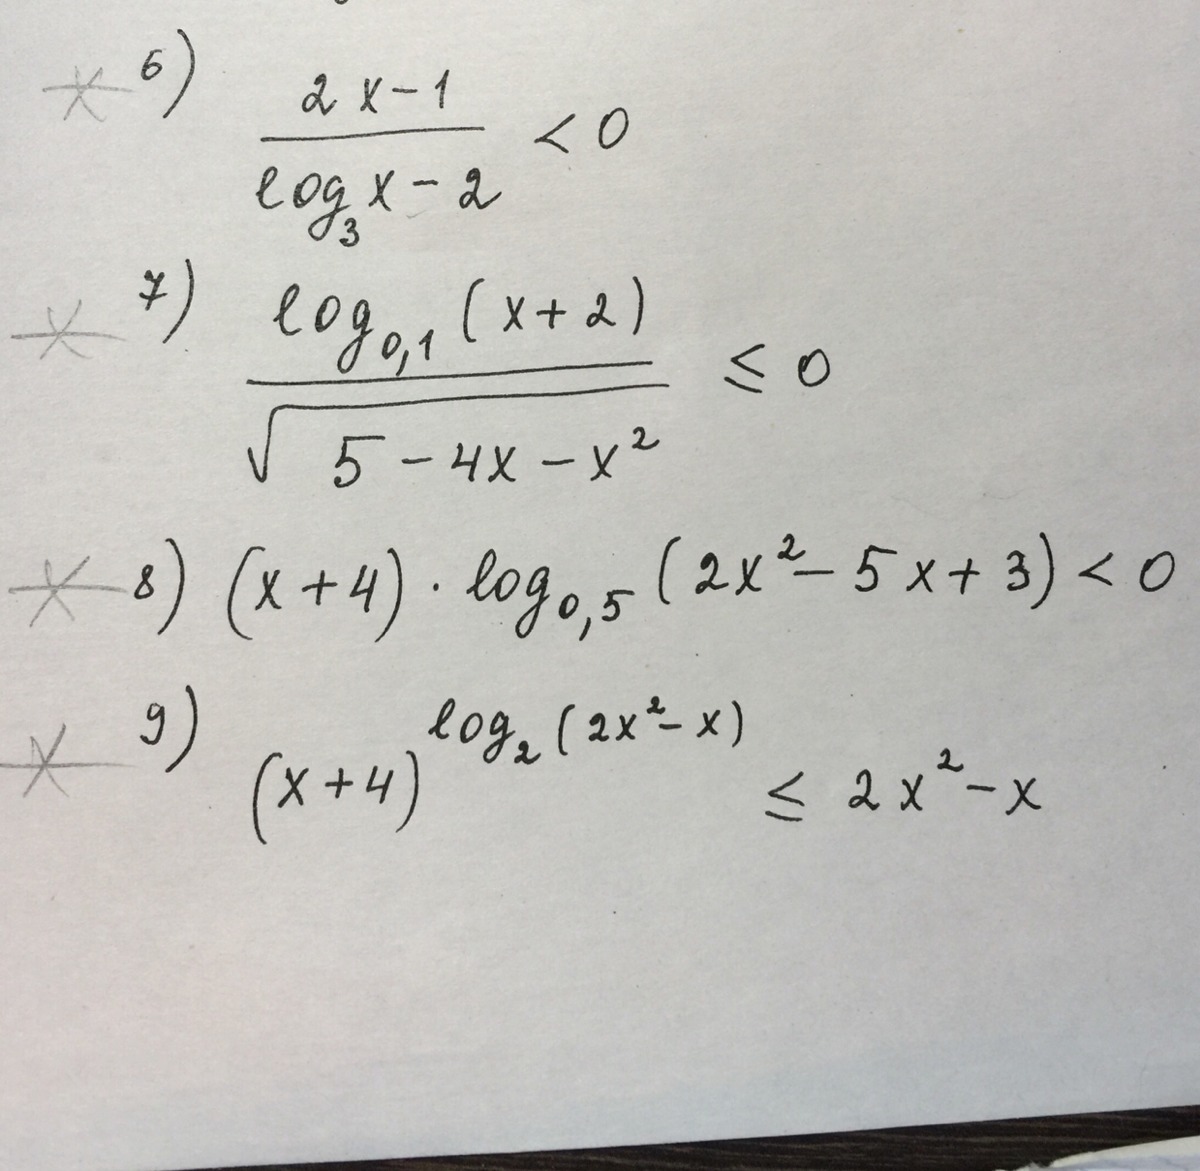 6)
2x-1
< 0
log₃x - 2
7)
log₀,₁(x+2)
≤ 0
√5-4x-x²
8) (x+4) · log₀,₅(2x²-5x+3) < 0
9)
(x+4)^log₂(2x²-x) ≤ 2x²-x